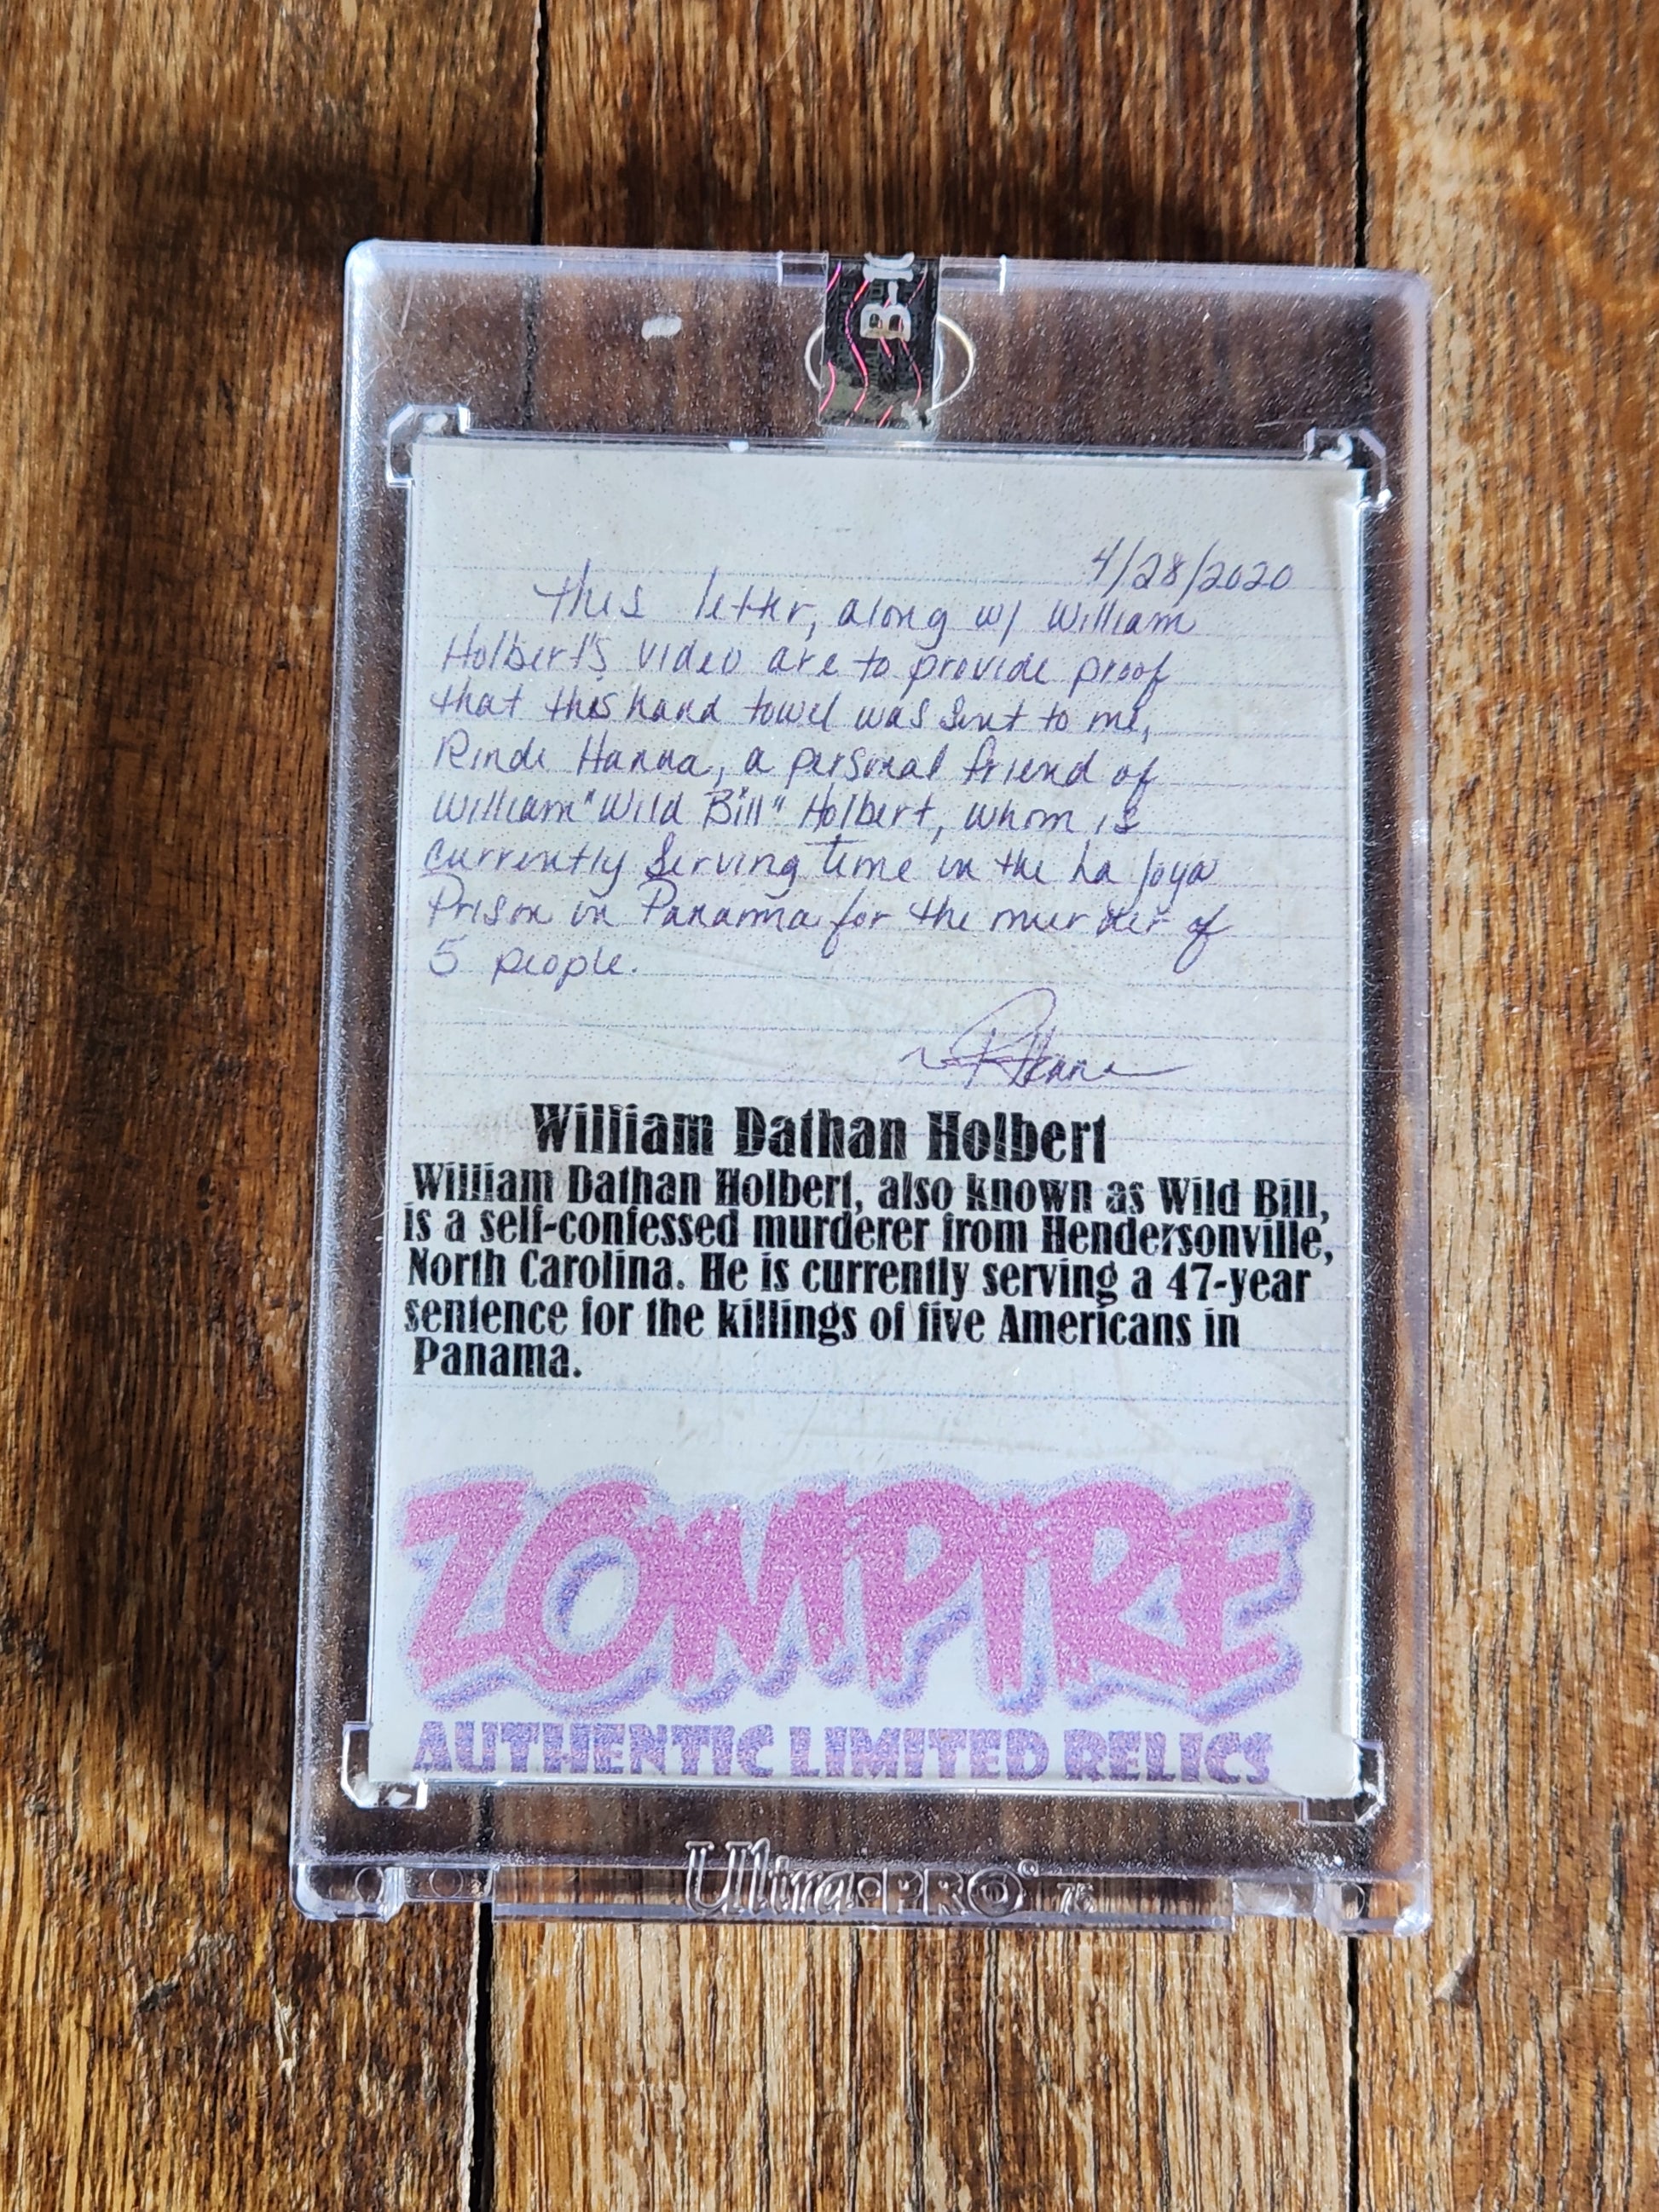 B-
4/28/2020
This letter, along w/ William
Holbert's video are to provide proof
that this hand towel was sent to me,
Rinde Hanna, a personal friend of
William "Wild Bill" Holbert, whom is
currently serving time in the La Joya
Prison in Panama for the murder of
5 people.
~ RHanna
William Dathan Holbert
William Dathan Holbert, also known as Wild Bill,
is a self-confessed murderer from Hendersonville,
North Carolina. He is currently serving a 47-year
sentence for the killings of five Americans in
Panama.
ZOMPIRE
AUTHENTIC LIMITED RELICS
Ultra•PRO®